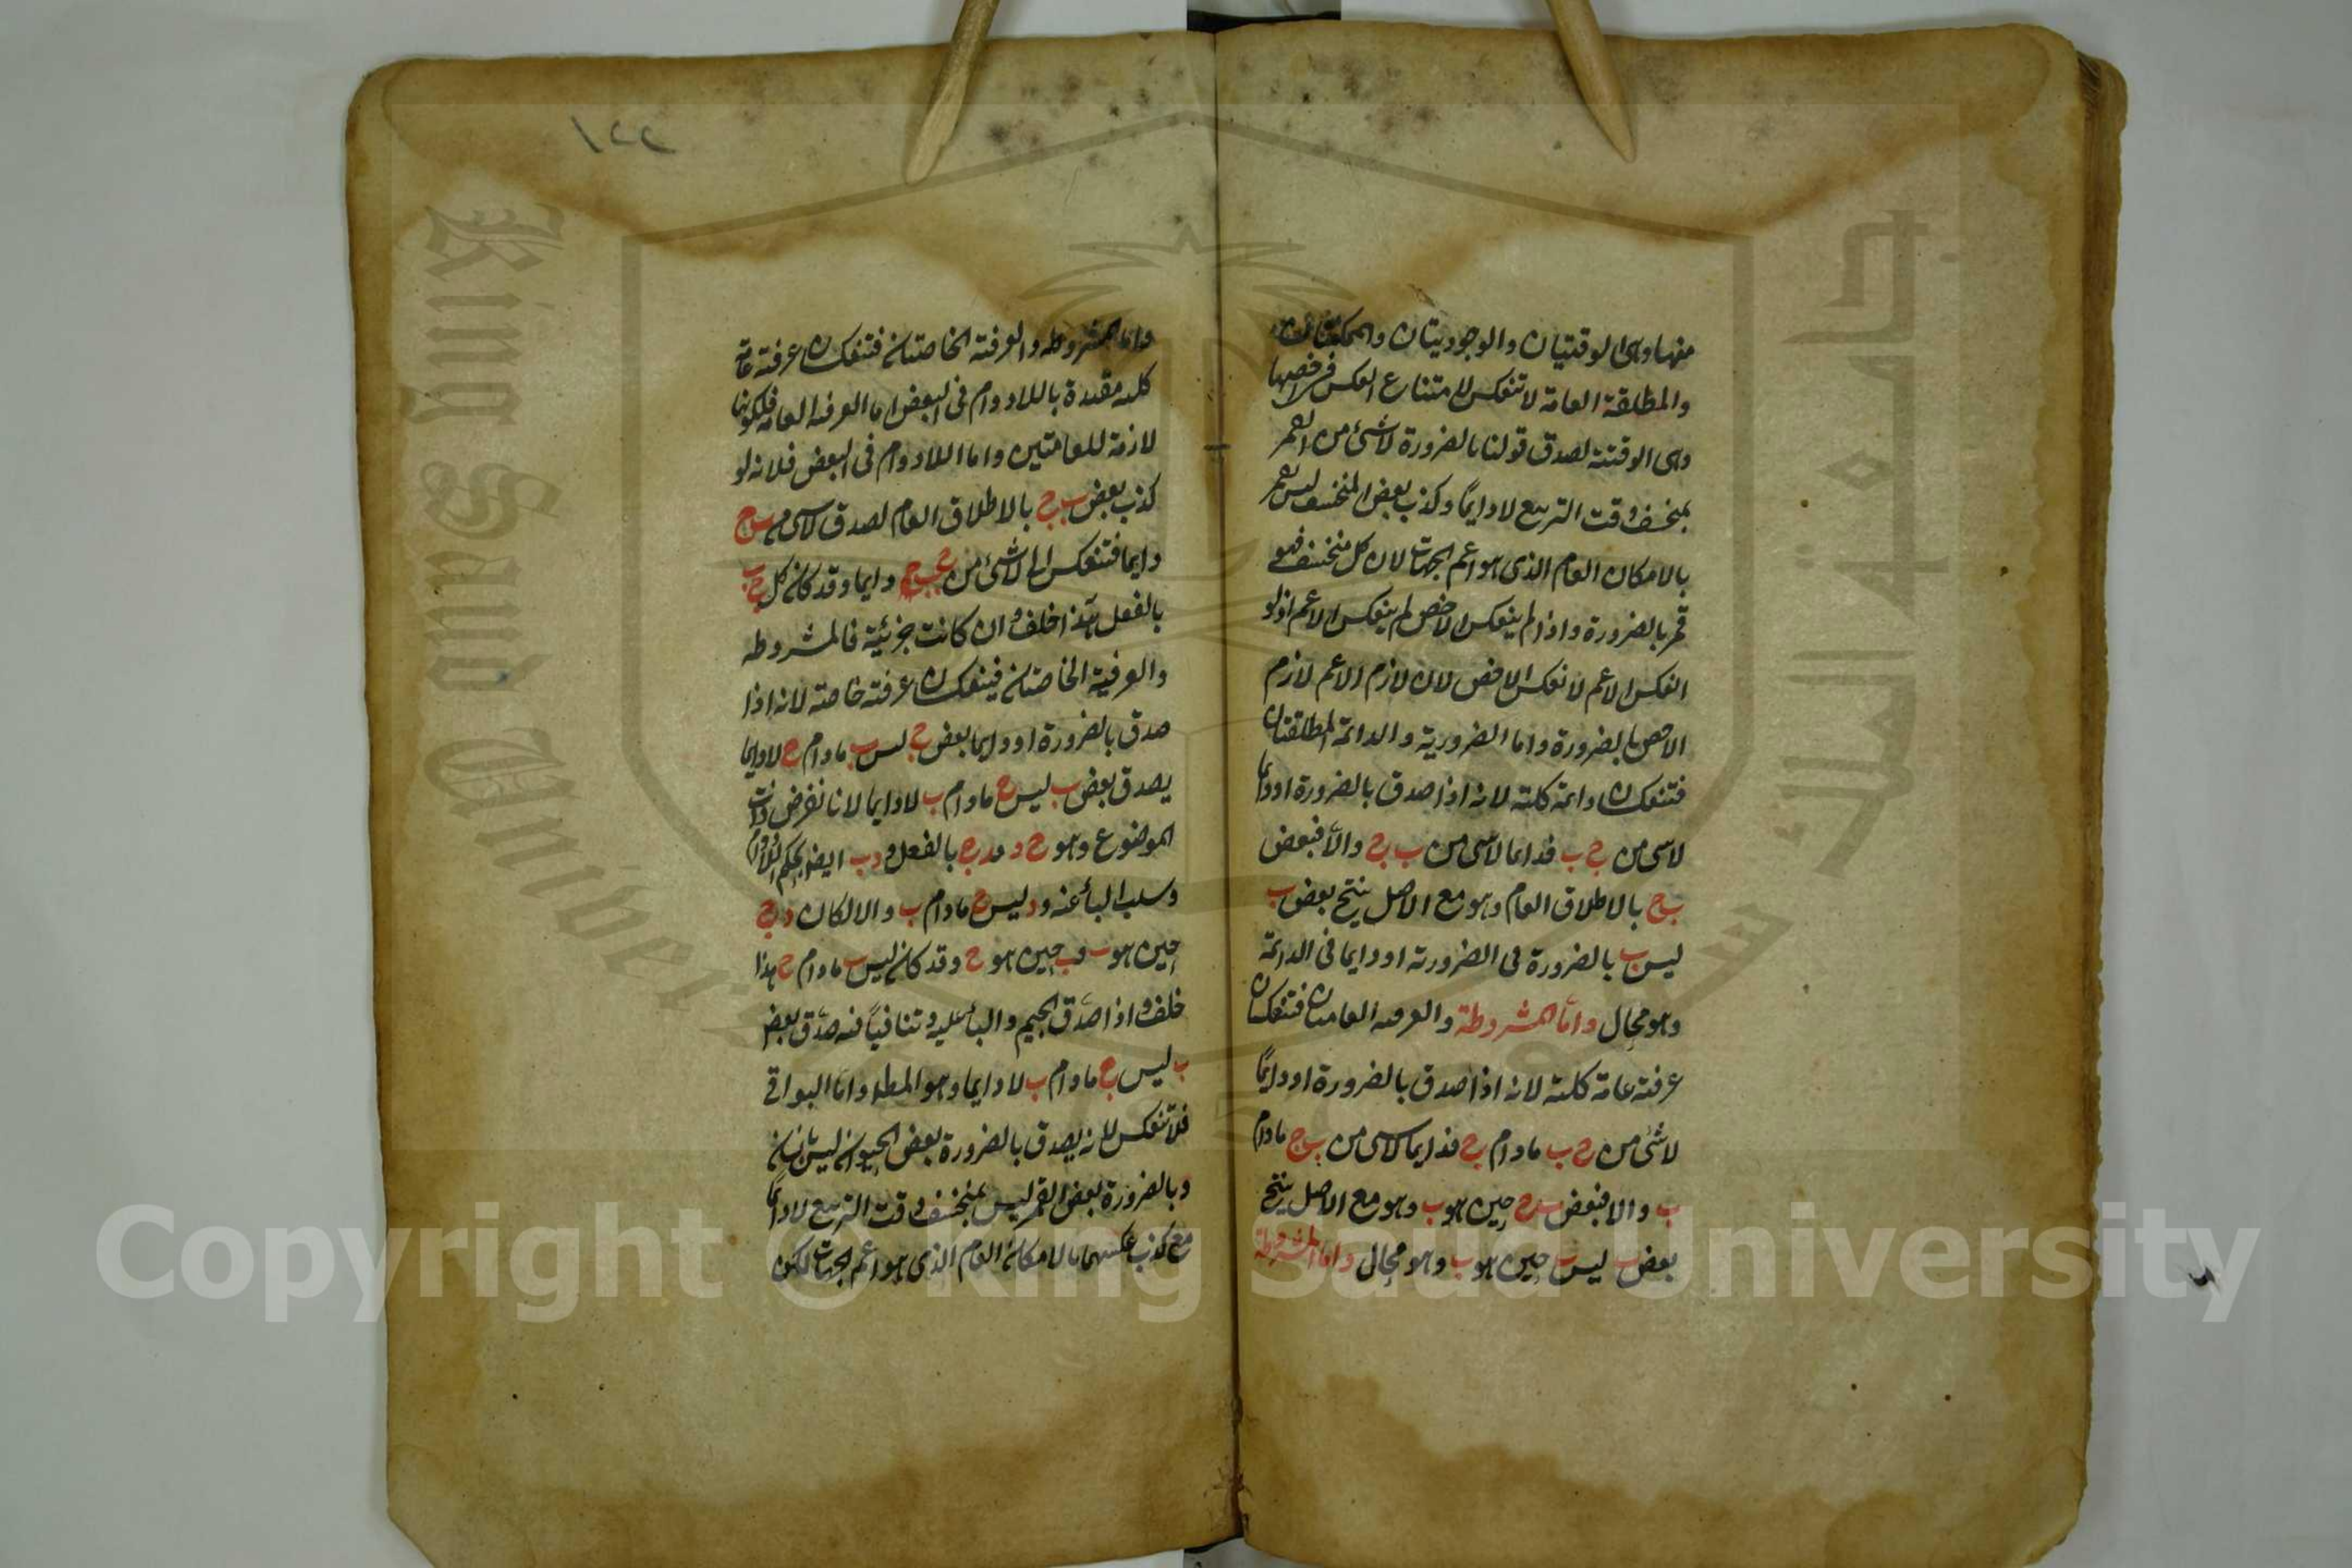 منها وهى الوقتيتان والوجوديتان والممكنتان
والمطلقة العامة لا تنعكس لامتناع العكس فى اخصها
وهى الوقتية لصدق قولنا بالضرورة لا شئ من القمر
بمنخسف وقت التربيع لا دايمًا وكذب بعض المنخسف ليس بقمر
بالامكان العام الذى هو اعم الجهات لان كل منخسف فهو
قمر بالضرورة واذا لم ينعكس الاخص لم ينعكس الاعم اذ لو
انعكس الاعم لانعكس الاخص لان لازم الاعم لازم
الاخص بالضرورة واما الضرورية والدائمة المطلقتان
فتنعكسان دائمة كلية لانه اذا صدق بالضرورة او دايما
لا شى من ج ب فدايما لا شى من ب ج والا فبعض
ب ج بالاطلاق العام وهو مع الاصل ينتج بعض ب
ليس ب بالضرورة فى الضرورية او دايما فى الدائمة
وهو محال واما المشروطة والعرفية العامتان فتنعكسان
عرفية عامة كلية لانه اذا صدق بالضرورة او دايمًا
لا شئ من ج ب ما دام ج فدايما لا شى من ب ج مادام
ب والا فبعض ب ج حين هو ب وهو مع الاصل ينتج
بعض ب ليس ب حين هو ب وهو محال واما المشروطة
١٢٢
واما المشروطه والعرفية الخاصتان فتنعكسان عرفية عامة
كلية مقيدة باللادوام فى البعض اما العرفية العامة فلكونها
لازمة للعامتين واما اللادوام فى البعض فلانه لو
كذب بعض ب ج بالاطلاق العام لصدق لا شى من ب ج
دايما فتنعكس الى لا شئ من ج ب دايما وقد كان كل ج ب
بالفعل هذا خلف وان كانت جزئية فالمشروطه
والعرفية الخاصتان فينعكسان عرفية خاصة لانه اذا
صدق بالضرورة او دايما بعض ج ليس ب مادام ج لا دايما
يصدق بعض ب ليس ج مادام ب لا دايما لانا نفرض ذات
الموضوع وهو ج د فد ج بالفعل و د ب ايضا بحكم اللادوام
وسلب الباء عنه و د ليس ج مادام ب والا لكان د ج
حين هو ب و ب حين هو ج وقد كان ليس ب مادام ج هذا
خلف واذا صدق الجيم والباء عليه وتنافيا فيه صدق بعض
ب ليس ج مادام ب لا دايما وهو المط واما البواقى
فلا تنعكس لانه يصدق بالضرورة بعض الحيوان ليس بانسان
وبالضرورة بعض القمر ليس بمنخسف وقت التربيع لا دايمًا
مع كذب عكسهما بالامكان العام الذى هو اعم الجهات لكن
Copyright © King Saud University